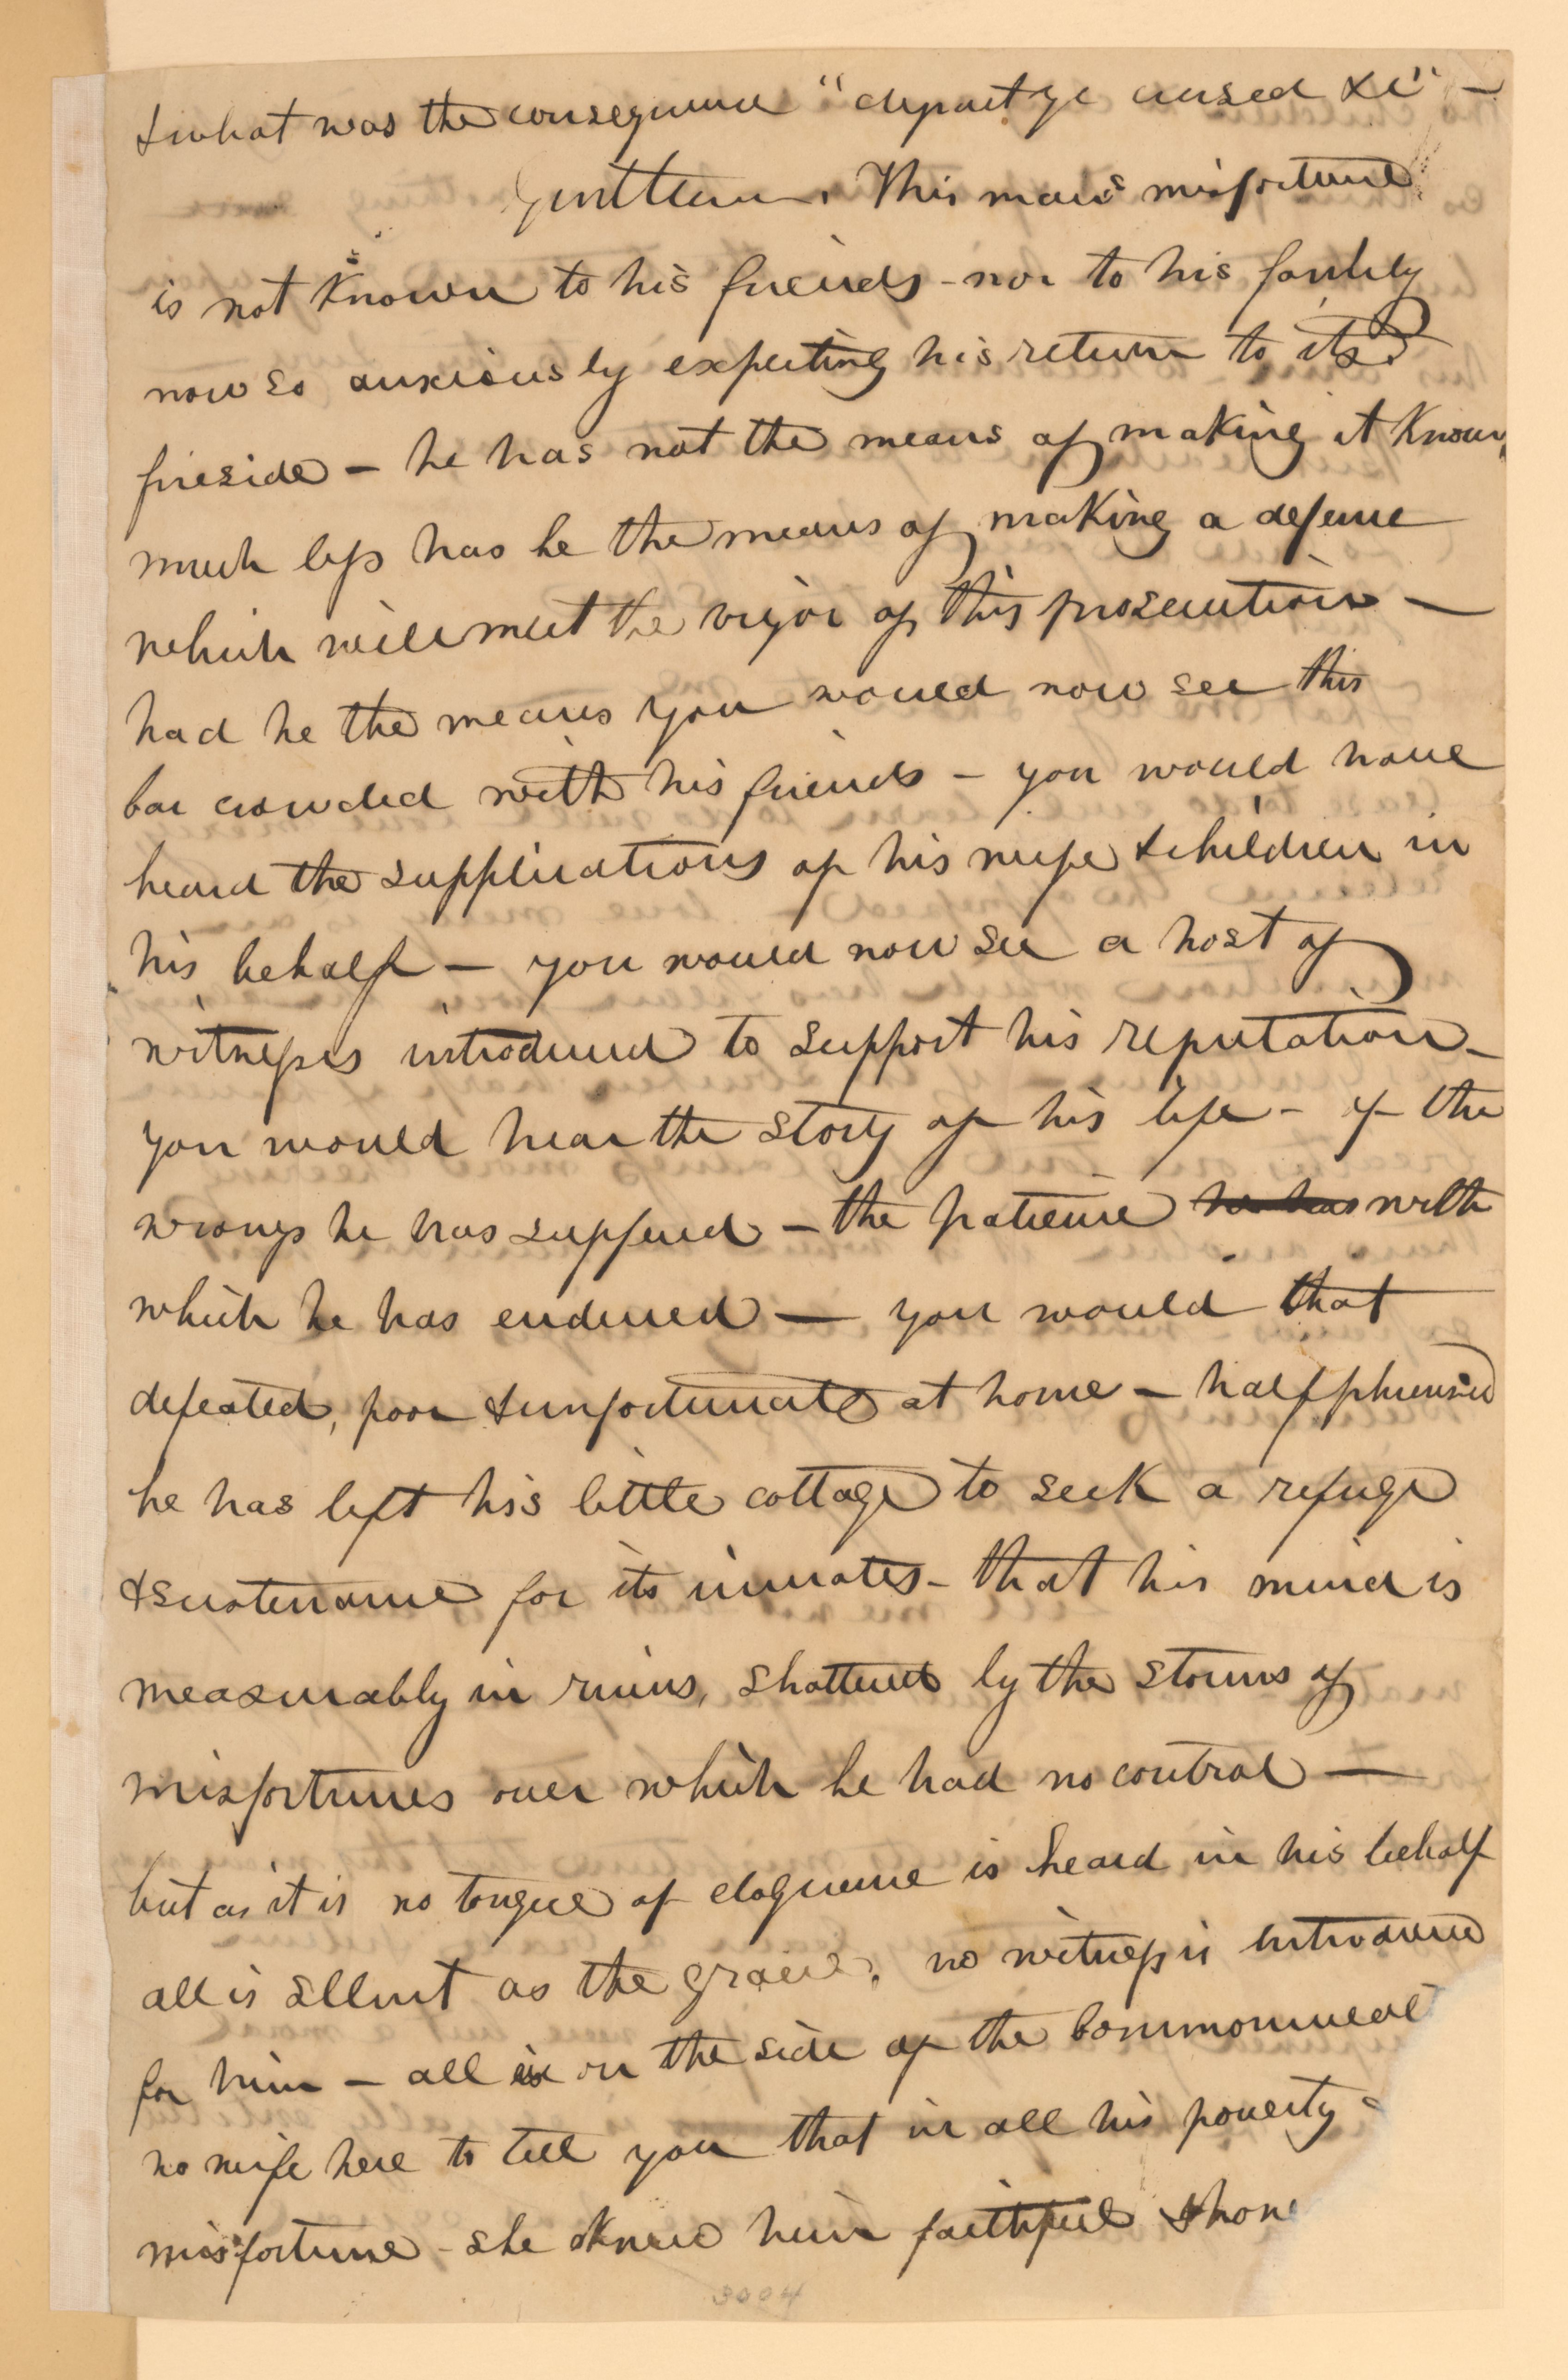 & what was the consequence "depart ye cursed &c" —
Gentlemen. This man's misfortune
is not known to his friends - nor to his family
now so anxiously expecting his return to its
fireside — he has not the means of making it known,
much less has he the means of making a defence
which will meet the vigor of this prosecution —
had he the means you would now see this
bar crowded with his friends — you would have
heard the supplications of his wife & children in
his behalf — you would now see a host of
witnesses introduced to support his reputation —
you would hear the story of his life - of the
wrongs he has suffered — the patience he has with
which he has endured — you would that
defeated, poor & unfortunate at home — half phrensied
he has left his little cottage to seek a refuge
& sustenance for its inmates - that his mind is
measurably in ruins, shattered by the storms of
misfortunes over which he had no control —
but as it is no tongue of eloquence is heard in his behalf
all is silent as the grave. no witness is introduced
for him — all is on the side of the Commonweal
no wife here to tell you that in all his poverty
misfortune - she knew him faithful & hon
3004